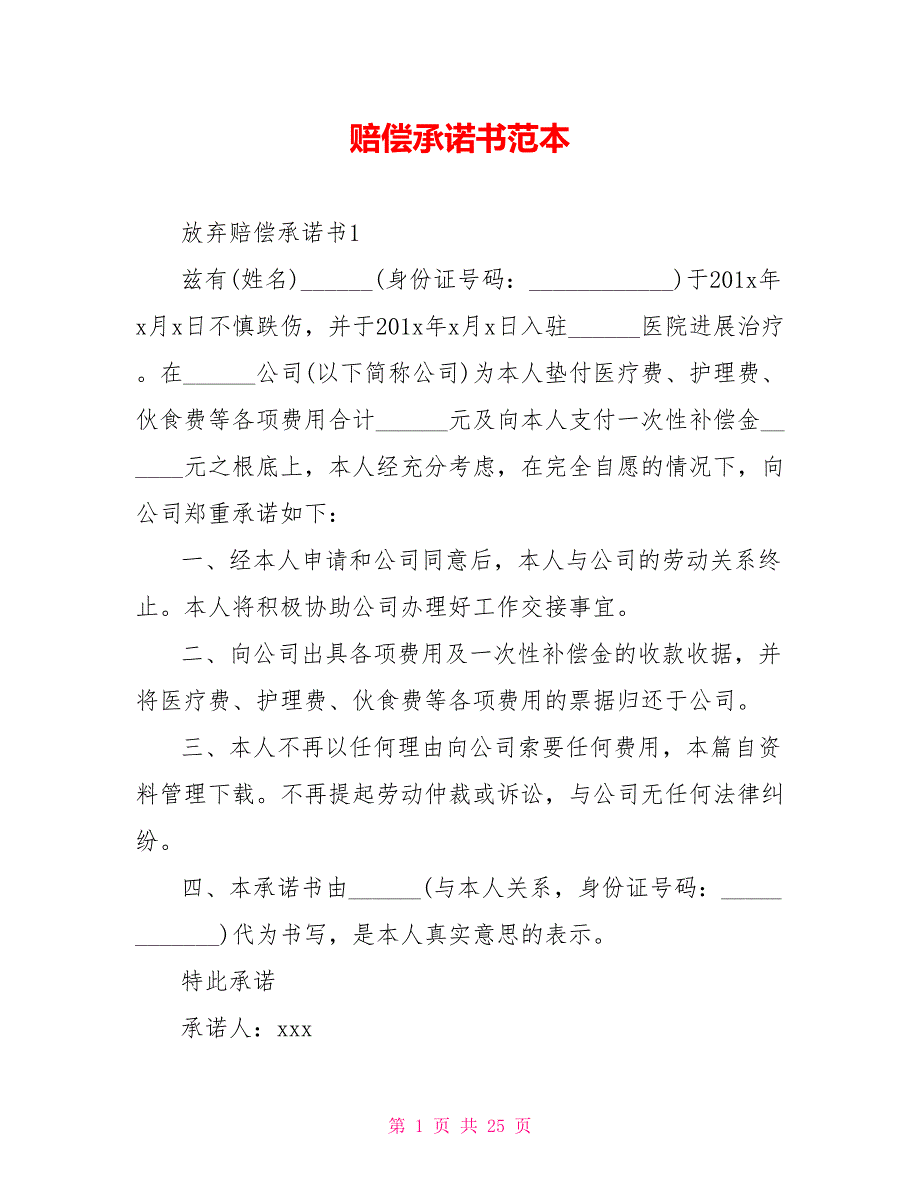 赔偿承诺书范本
放弃赔偿承诺书1
兹有(姓名)______(身份证号码：____________)于201x年
x月x日不慎跌伤，并于201x年x月x日入驻______医院进展治疗
。在______公司(以下简称公司)为本人垫付医疗费、护理费、
伙食费等各项费用合计______元及向本人支付一次性补偿金__
____元之根底上，本人经充分考虑，在完全自愿的情况下，向
公司郑重承诺如下：
一、经本人申请和公司同意后，本人与公司的劳动关系终
止。本人将积极协助公司办理好工作交接事宜。
二、向公司出具各项费用及一次性补偿金的收款收据，并
将医疗费、护理费、伙食费等各项费用的票据归还于公司。
三、本人不再以任何理由向公司索要任何费用，本篇自资
料管理下载。不再提起劳动仲裁或诉讼，与公司无任何法律纠
纷。
四、本承诺书由______(与本人关系，身份证号码：_____
_______)代为书写，是本人真实意思的表示。
特此承诺
承诺人：xxx
第 1 页 共 25 页